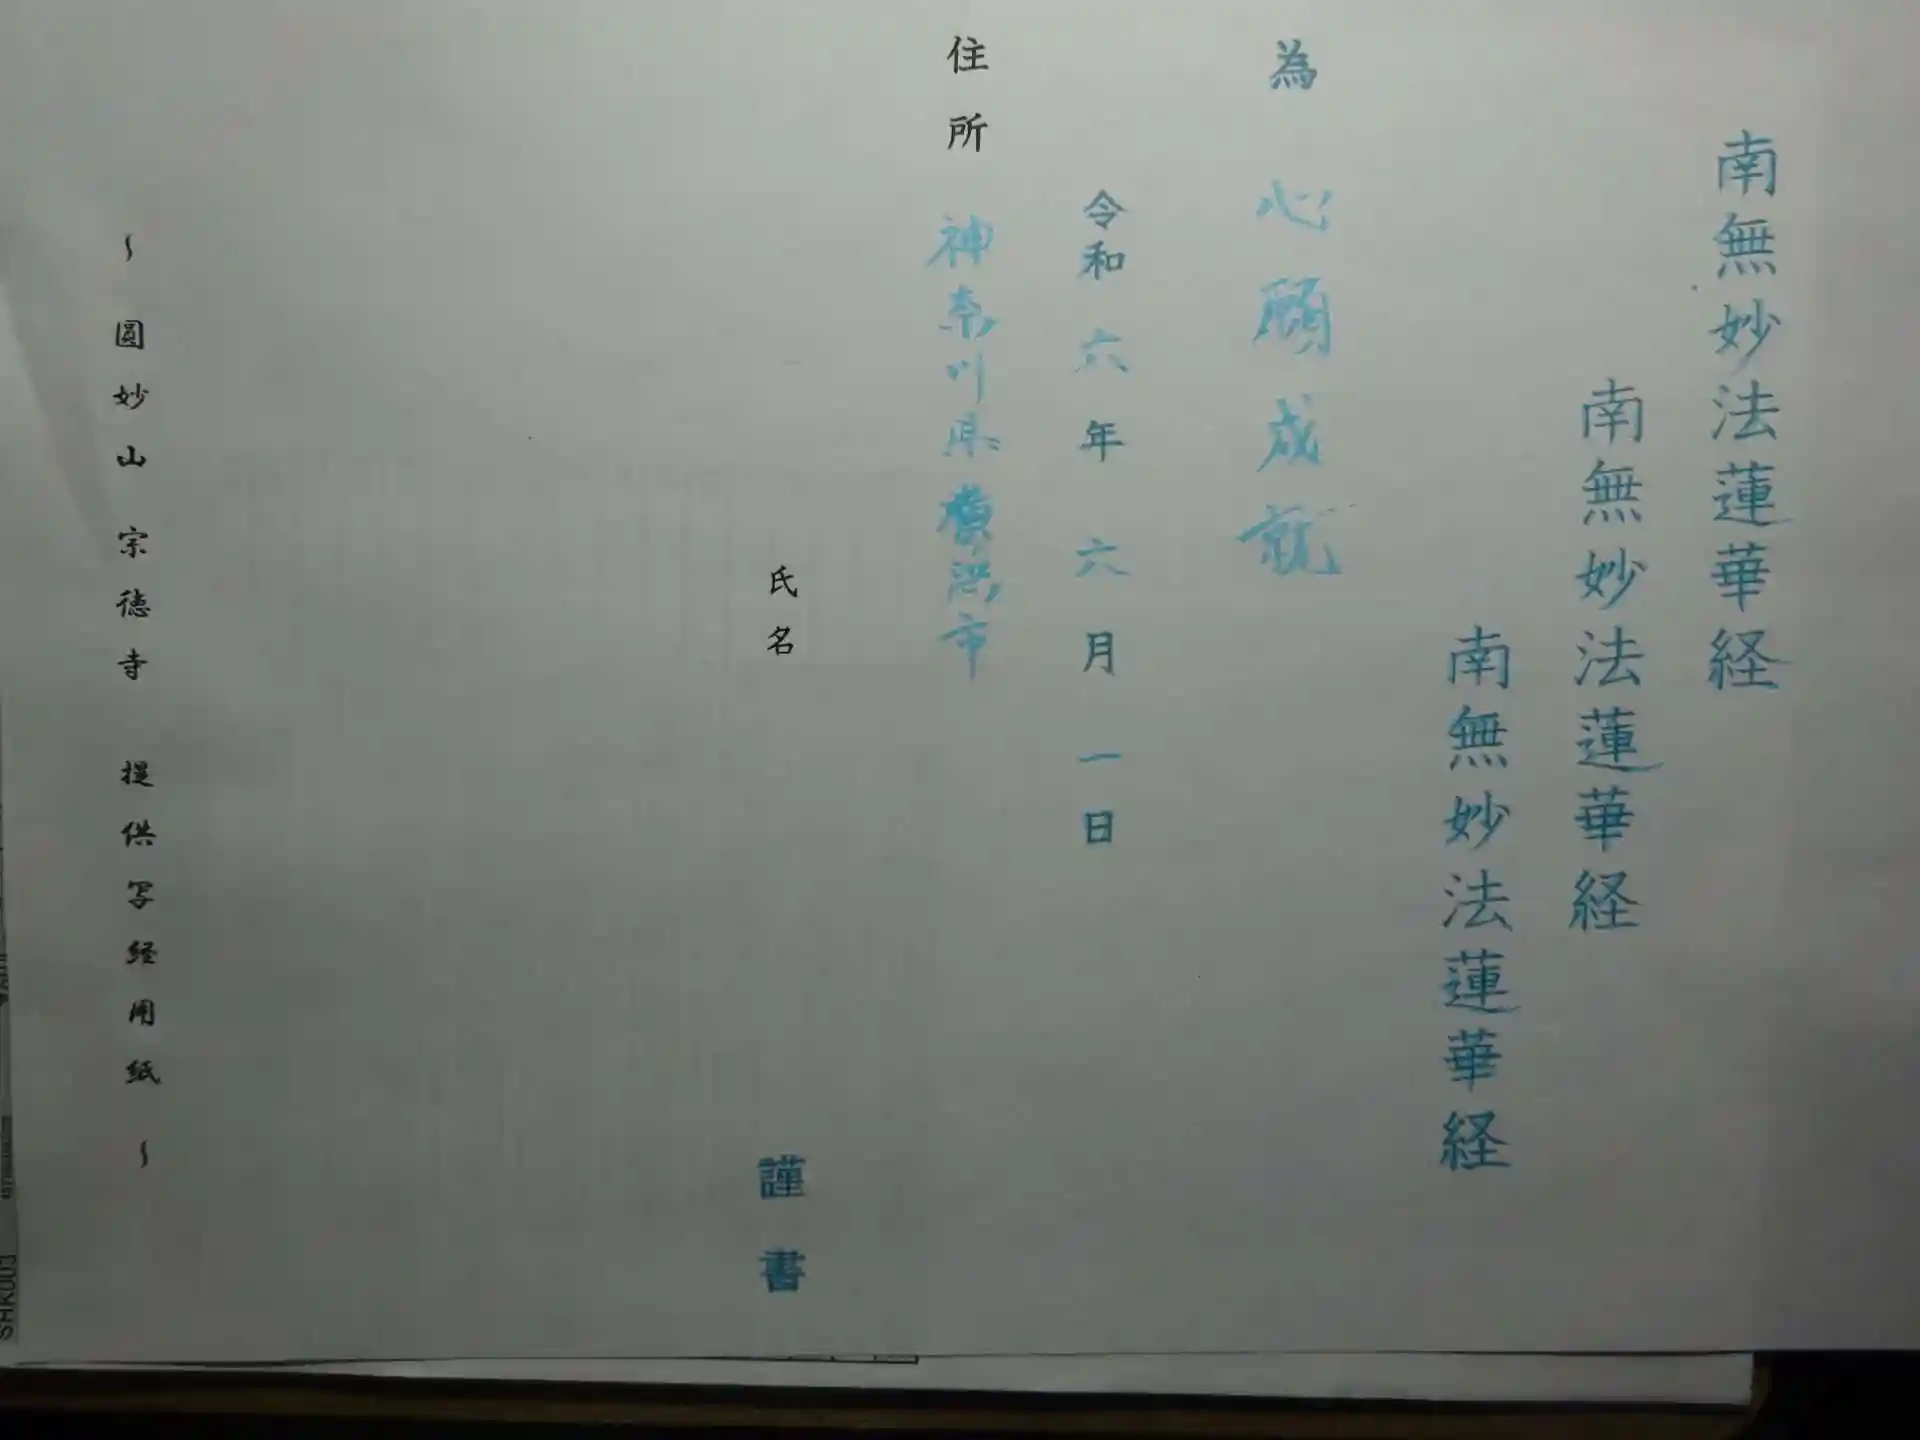 南無妙法蓮華経
南無妙法蓮華経
南無妙法蓮華経
為 心願成就
令和六年六月一日
住所 神奈川県横浜市
氏名 謹書
～圓妙山 宗徳寺 提供写経用紙～
SHK003